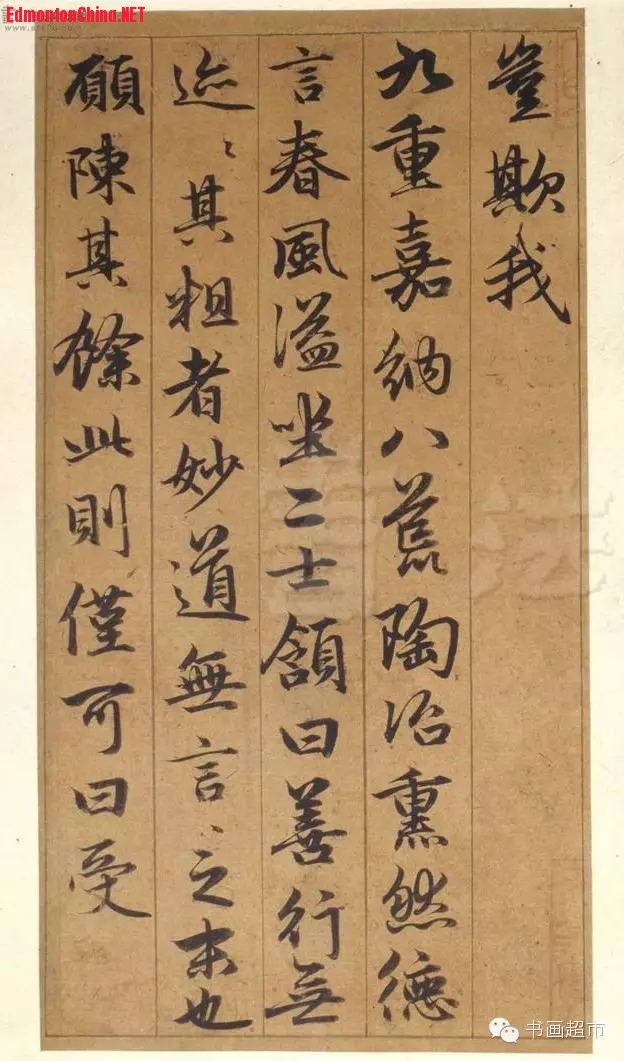 EdmontonChina.NET
豈欺我
九重嘉納八荒陶冶熏然德
言春風溢坐二士頷曰善行無
迹〻其粗者妙道無言〻之末也
願陳其餘此則僅可曰受
书画超市